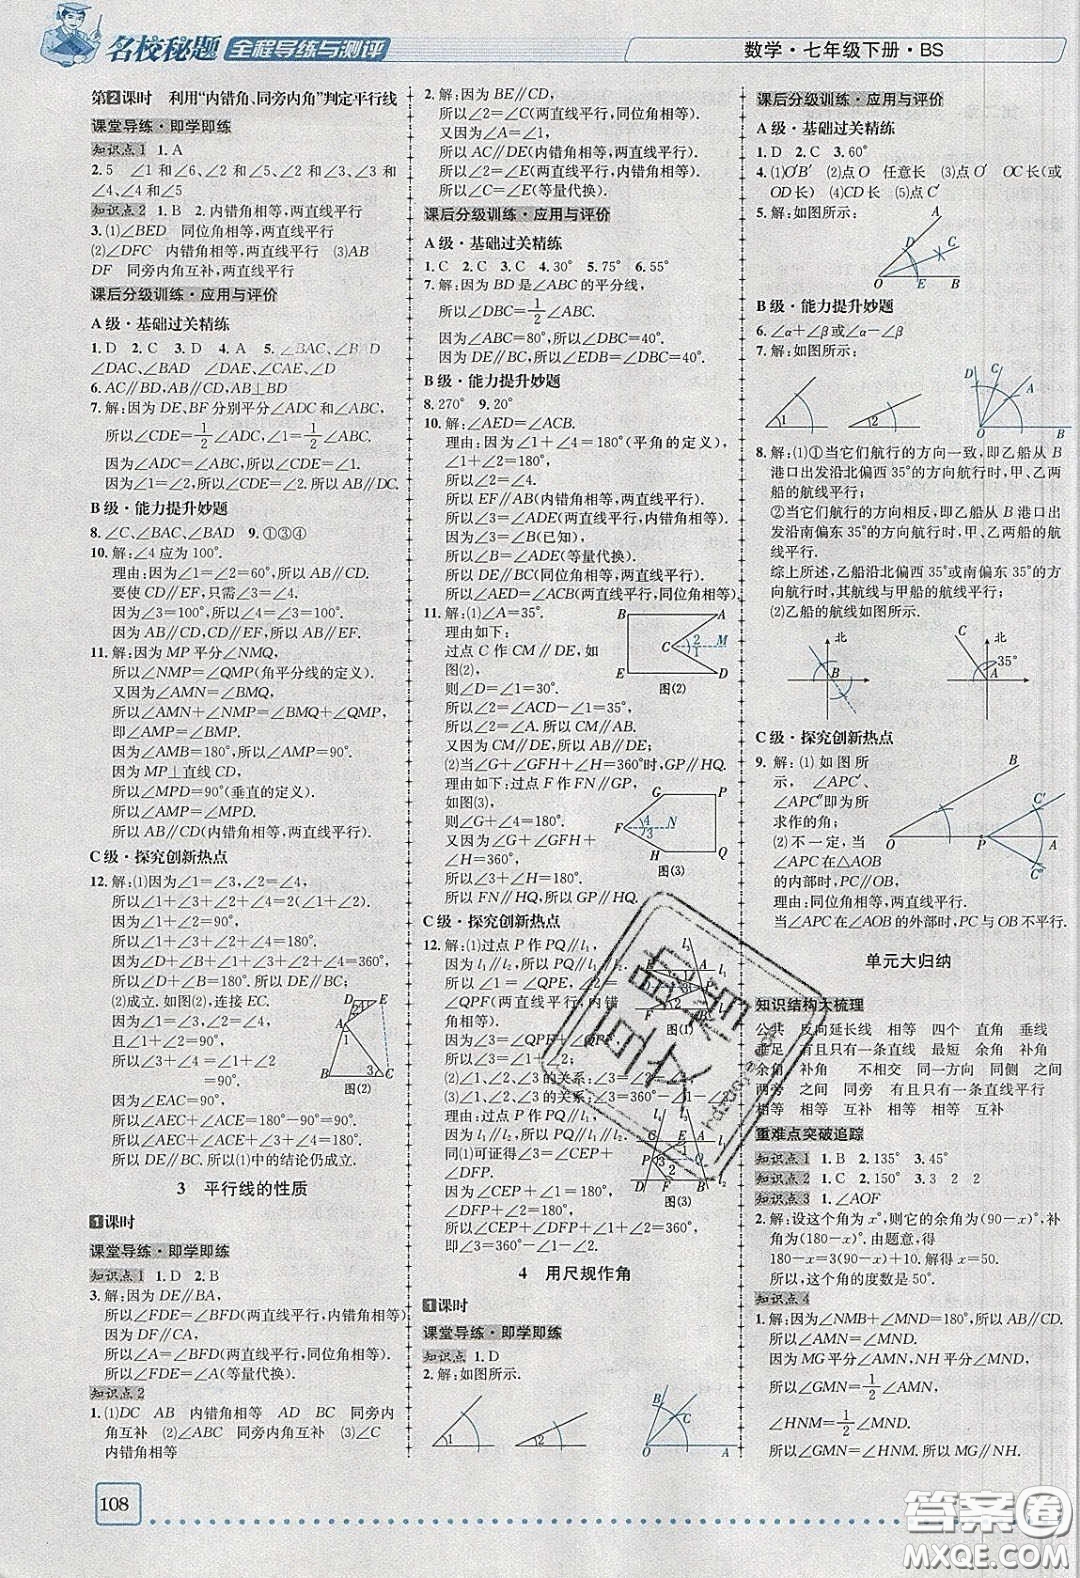 名校秘题 全程导练与测评
数学·七年级下册·BS
第2课时 利用“内错角、同旁内角”判定平行线
课堂导练·即学即练
知识点1 1.A
2.5 ∠1和∠6、∠2和∠5、∠2和∠3、∠3和
∠4、∠4和∠5
知识点2 1.B 2.内错角相等,两直线平行
3.(1)∠BED 同位角相等,两直线平行
(2)∠DFC 内错角相等,两直线平行 (3)AB
DF 同旁内角互补,两直线平行
课后分级训练·应用与评价
A级·基础过关精练
1.D 2.C 3.D 4.A 5.∠BAC、∠BAD
∠DAC、∠BAE、∠DAE ∠CAE、∠D
6.AC∥BD,AB∥CD,AB⊥BD
7.解:因为DE、BF分别平分∠ADC和∠ABC,
所以∠CDE=1/2∠ADC,∠1=1/2∠ABC.
因为∠ADC=∠ABC,所以∠1=∠CDE.
因为∠1=∠2,所以∠CDE=∠2.所以AB∥DC.
B级·能力提升妙题
8.∠C、∠BAC、∠BAD 9.①③④
10.解:∠4应为100°.
理由:因为∠1=∠2=60°,所以AB∥CD.
要使CD∥EF,只需∠3=∠4.
因为∠3=100°,所以∠4=100°.
因为AB∥CD,CD∥EF,所以AB∥EF.
11.解:因为MP平分∠NMQ,
所以∠NMP=∠QMP(角平分线的定义).
又因为∠AMN=∠BMQ,
所以∠AMN+∠NMP=∠BMQ+∠QMP,
即∠AMP=∠BMP.
因为∠AMB=180°,所以∠AMP=90°.
因为MP⊥直线CD,
所以∠MPD=90°(垂直的定义).
所以∠AMP=∠MPD.
所以AB∥CD(内错角相等,两直线平行).
C级·探究创新热点
12.解:(1)因为∠1=∠3,∠2=∠4,
所以∠1+∠3+∠2+∠4=2(∠1+∠2).
因为∠1+∠2=90°,
所以∠1+∠3+∠2+∠4=180°.
因为∠D+∠B+∠1+∠3+∠2+∠4=360°,
所以∠D+∠B=180°.所以DE∥BC.
(2)成立.如图(2),连接EC.
因为∠1=∠3,∠2=∠4,
且∠1+∠2=90°,
所以∠3+∠4
=∠1+∠2
=90°.
图(2)
因为∠EAC=90°,
所以∠AEC+∠ACE=180°-90°=90°.
所以∠AEC+∠ACE+∠4+∠3=180°.
所以DE∥BC.所以(1)中的结论仍成立.
3 平行线的性质
1课时
课堂导练·即学即练
知识点1 1.D 2.B
3.解:因为DE∥BA,
所以∠FDE=∠BFD(两直线平行,内错角相等).
因为DF∥CA,
所以∠A=∠BFD(两直线平行,同位角相等).
所以∠FDE=∠A.
知识点2
1.(1)DC AB 内错角相等 AD BC 同旁内
角互补 (2)∠ABC 同旁内角互补 (3)∠C
内错角相等
108
2.解:因为BE∥CD,
所以∠2=∠C(两直线平行,同位角相等).
又因为∠A=∠1,
所以AC∥DE(内错角相等,两直线平行).
所以∠2=∠E(两直线平行,内错角相等).
所以∠C=∠E(等量代换).
课后分级训练·应用与评价
A级·基础过关精练
1.C 2.C 3.C 4.30° 5.75° 6.55°
7.解:因为BD是∠ABC的平分线,
所以∠DBC=1/2∠ABC.
因为∠ABC=80°,所以∠DBC=40°.
因为DE∥BC,所以∠EDB=∠DBC=40°.
B级·能力提升妙题
8.270° 9.20°
10.解:∠AED=∠ACB.
理由:因为∠1+∠4=180°(平角的定义),
∠1+∠2=180°,
所以∠2=∠4.
所以EF∥AB(内错角相等,两直线平行).
所以∠3=∠ADE(两直线平行,内错角相等).
因为∠3=∠B(已知),
所以∠B=∠ADE(等量代换).
所以DE∥BC(同位角相等,两直线平行).
所以∠AED=∠ACB(两直线平行,同位角相等).
11.解:(1)∠A=35°.
理由如下:
过点C作CM∥DE,如
图(2),
则∠D=∠1=30°.
所以∠2=∠ACD-∠1=35°,
所以∠2=∠A.所以CM∥AB.
又因为CM∥DE,所以AB∥DE;
图(2)
(2)当∠G+∠GFH+∠H=360°时,GP∥HQ.
理由如下:过点F作FN∥GP,
如图(3),
所以∠G+∠4=180°.
又因为∠G+∠GFH+
∠H=360°,
所以∠3+∠H=180°.
所以FN∥HQ,所以GP∥HQ.
图(3)
C级·探究创新热点
12.解:(1)过点P作PQ∥l₁,
因为l₁∥l₂,所以PQ∥l₂.
所以∠1=∠QPE,∠2=
∠QPF(两直线平行,内错
角相等).
所以∠3=∠1+∠2;
图(1)
理由:过点P作PQ∥l₁,
因为l₁∥l₂,
同(1)可证得∠CEP+∠DFP=
∠CEP+∠1=180°,
∠DFP+∠2=180°,
所以∠CEP+∠1+∠DFP+∠2=360°,
即∠3+∠1+∠2=360°.
图(3)
4 用尺规作角
1课时
课堂导练·即学即练
知识点 1.D
2.解:如图所示.
课后分级训练·应用与评价
A级·基础过关精练
1.D 2.D 3.60°
4.(1)O′B′ (2)点O 任意长 (3)点O′ OC长(或
OD长) (4)CD长 (5)点C′
5.解:如图所示:
B级·能力提升妙题
6.∠α+∠β或∠α-∠β
7.解:如图所示:
8.解:(1)①当它们航行的方向一致,即乙船从B
港口出发沿北偏西35°的方向航行时,甲、乙两
船的航线平行;
②当它们航行的方向相反,即乙船从B港口出
发沿南偏东35°的方向航行时,甲、乙两船的航
线平行.
综上所述,乙船沿北偏西35°或南偏东35°的方
向航行时,其航线与甲船的航线平行;
(2)乙船的航线如图所示.
C级·探究创新热点
9.解:(1)如图所
示,∠APC′、
∠APC″即为所
求作的角;
(2)不一定,当
∠APC在∠AOB
的内部时,PC∥OB.
理由:同位角相等,两直线平行.
当∠APC在∠AOB的外部时,PC与OB不平行.
单元大归纳
知识结构大梳理
公共 反向延长线 相等 四个 直角 垂线
垂足 有且只有一条直线 最短 余角 补角
余角 补角 不相交 同一方向 同侧 之间
两旁 之间 同旁 有且只有一条直线平行
相等 相等 互补 相等 相等 互补
重难点突破追踪
知识点1 1.B 2.135° 3.45°
知识点2 1.C 2.B 3.3 2 2
知识点3 1.∠AOF
2.解:设这个角为x°,则它的余角为(90-x)°,补
角为(180-x)°.由题意,得
180-x=3(90-x)+10.解得x=50.
所以,这个角的度数是50°.
知识点4
1.解:因为∠NMB+∠MND=180°,所以AB∥CD.
所以∠AMN=∠MND.
因为MG平分∠AMN,NH平分∠MND,
所以∠GMN=1/2∠AMN,
∠HNM=1/2∠MND.
所以∠GMN=∠HNM.所以MG∥NH.
答案圈
MXQE.COM